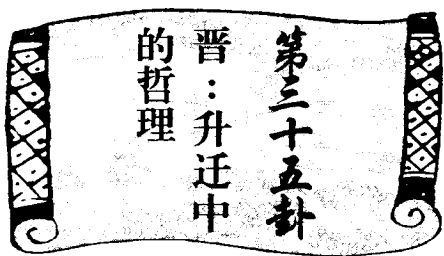 第三十五卦
晋：升迁中
的哲理